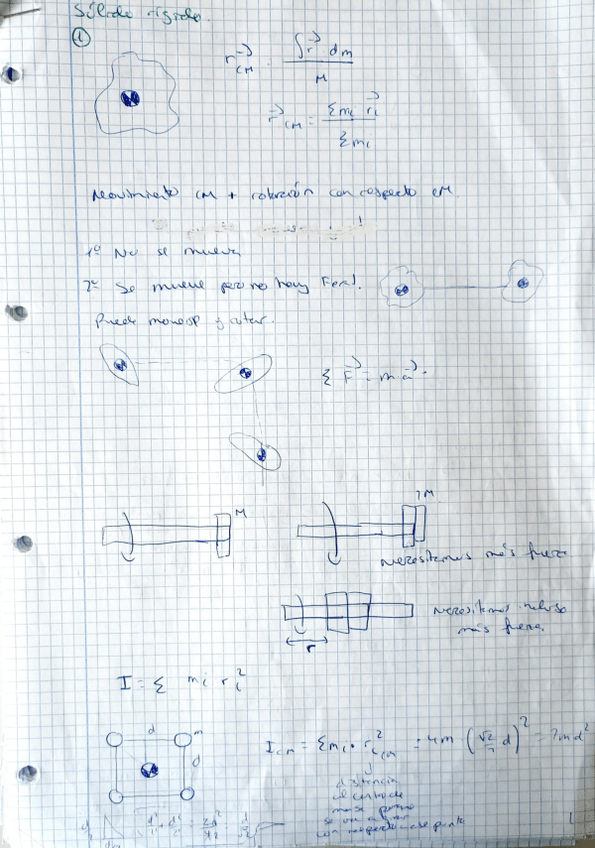 Sólido rígido.
1
r⃗_CM = ∫ r⃗ dm / M
r⃗_CM = Σ m_i r⃗_i / Σ m_i
Movimiento CM + rotación con respecto CM.
1º No se mueva
2º Se mueve pero no hay F
Puede y rotar.
Σ F⃗ = m a⃗
M
2M
necesitamos más fuerza
necesitamos incluso
más fuerza.
r
I = Σ m_i r_i²
d m
d
I_CM = Σ m_i · r_iCM² = 4m (√2/2 d)² = 2md²
distancia
al centro de
masas
se va a girar
con respecto a ese punto
1